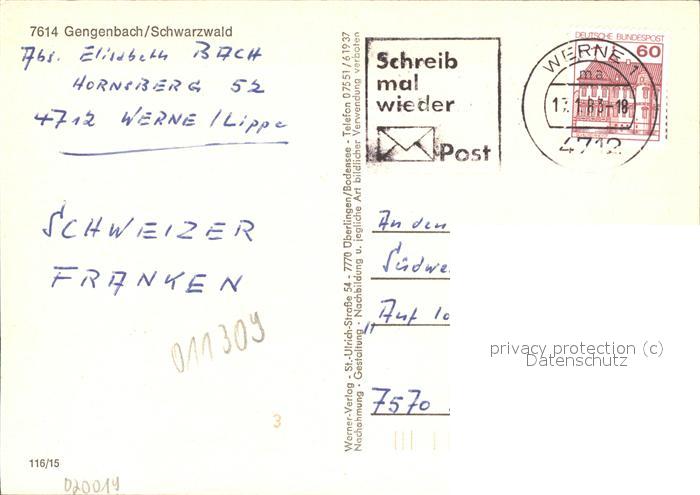 7614 Gengenbach/Schwarzwald
Abs. Elisabeth BACH
HORNSBERG 52
4712 WERNE / Lippe
SCHWEIZER
FRANKEN
011309
3
116/15
020019
Werner-Verlag - St.-Ulrich-Straße 54 - 7770 Überlingen/Bodensee - Telefon 07551/61937
Nachahmung - Gestaltung - Nachbildung u. jegliche Art bildlicher Verwendung verboten
Schreib
mal
wieder
Post
DEUTSCHE BUNDESPOST
60
WERNE 1
ma
13.1.83-18
4712
An den
Südwe
"Auf lo
7570
privacy protection (c)
Datenschutz